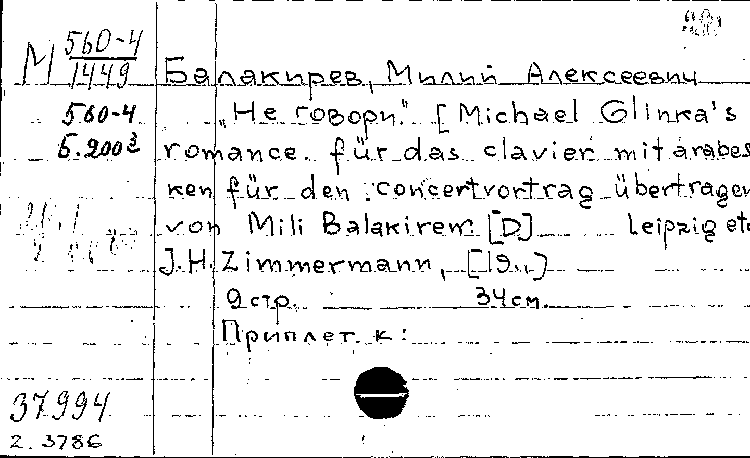 М 560-4
1449
Балакирев, Милий Алексеевич
560-4
Б.200з
"Не говори." [Michael Glinka's
romance. für das clavier mit arabes
ken für den concertvortrag übertragen
von Mili Balakirew. [D] Leipzig etc
J.H. Zimmermann, [19..)
9 стр. 34 см.
Приплет. к:
37994
2. 3786